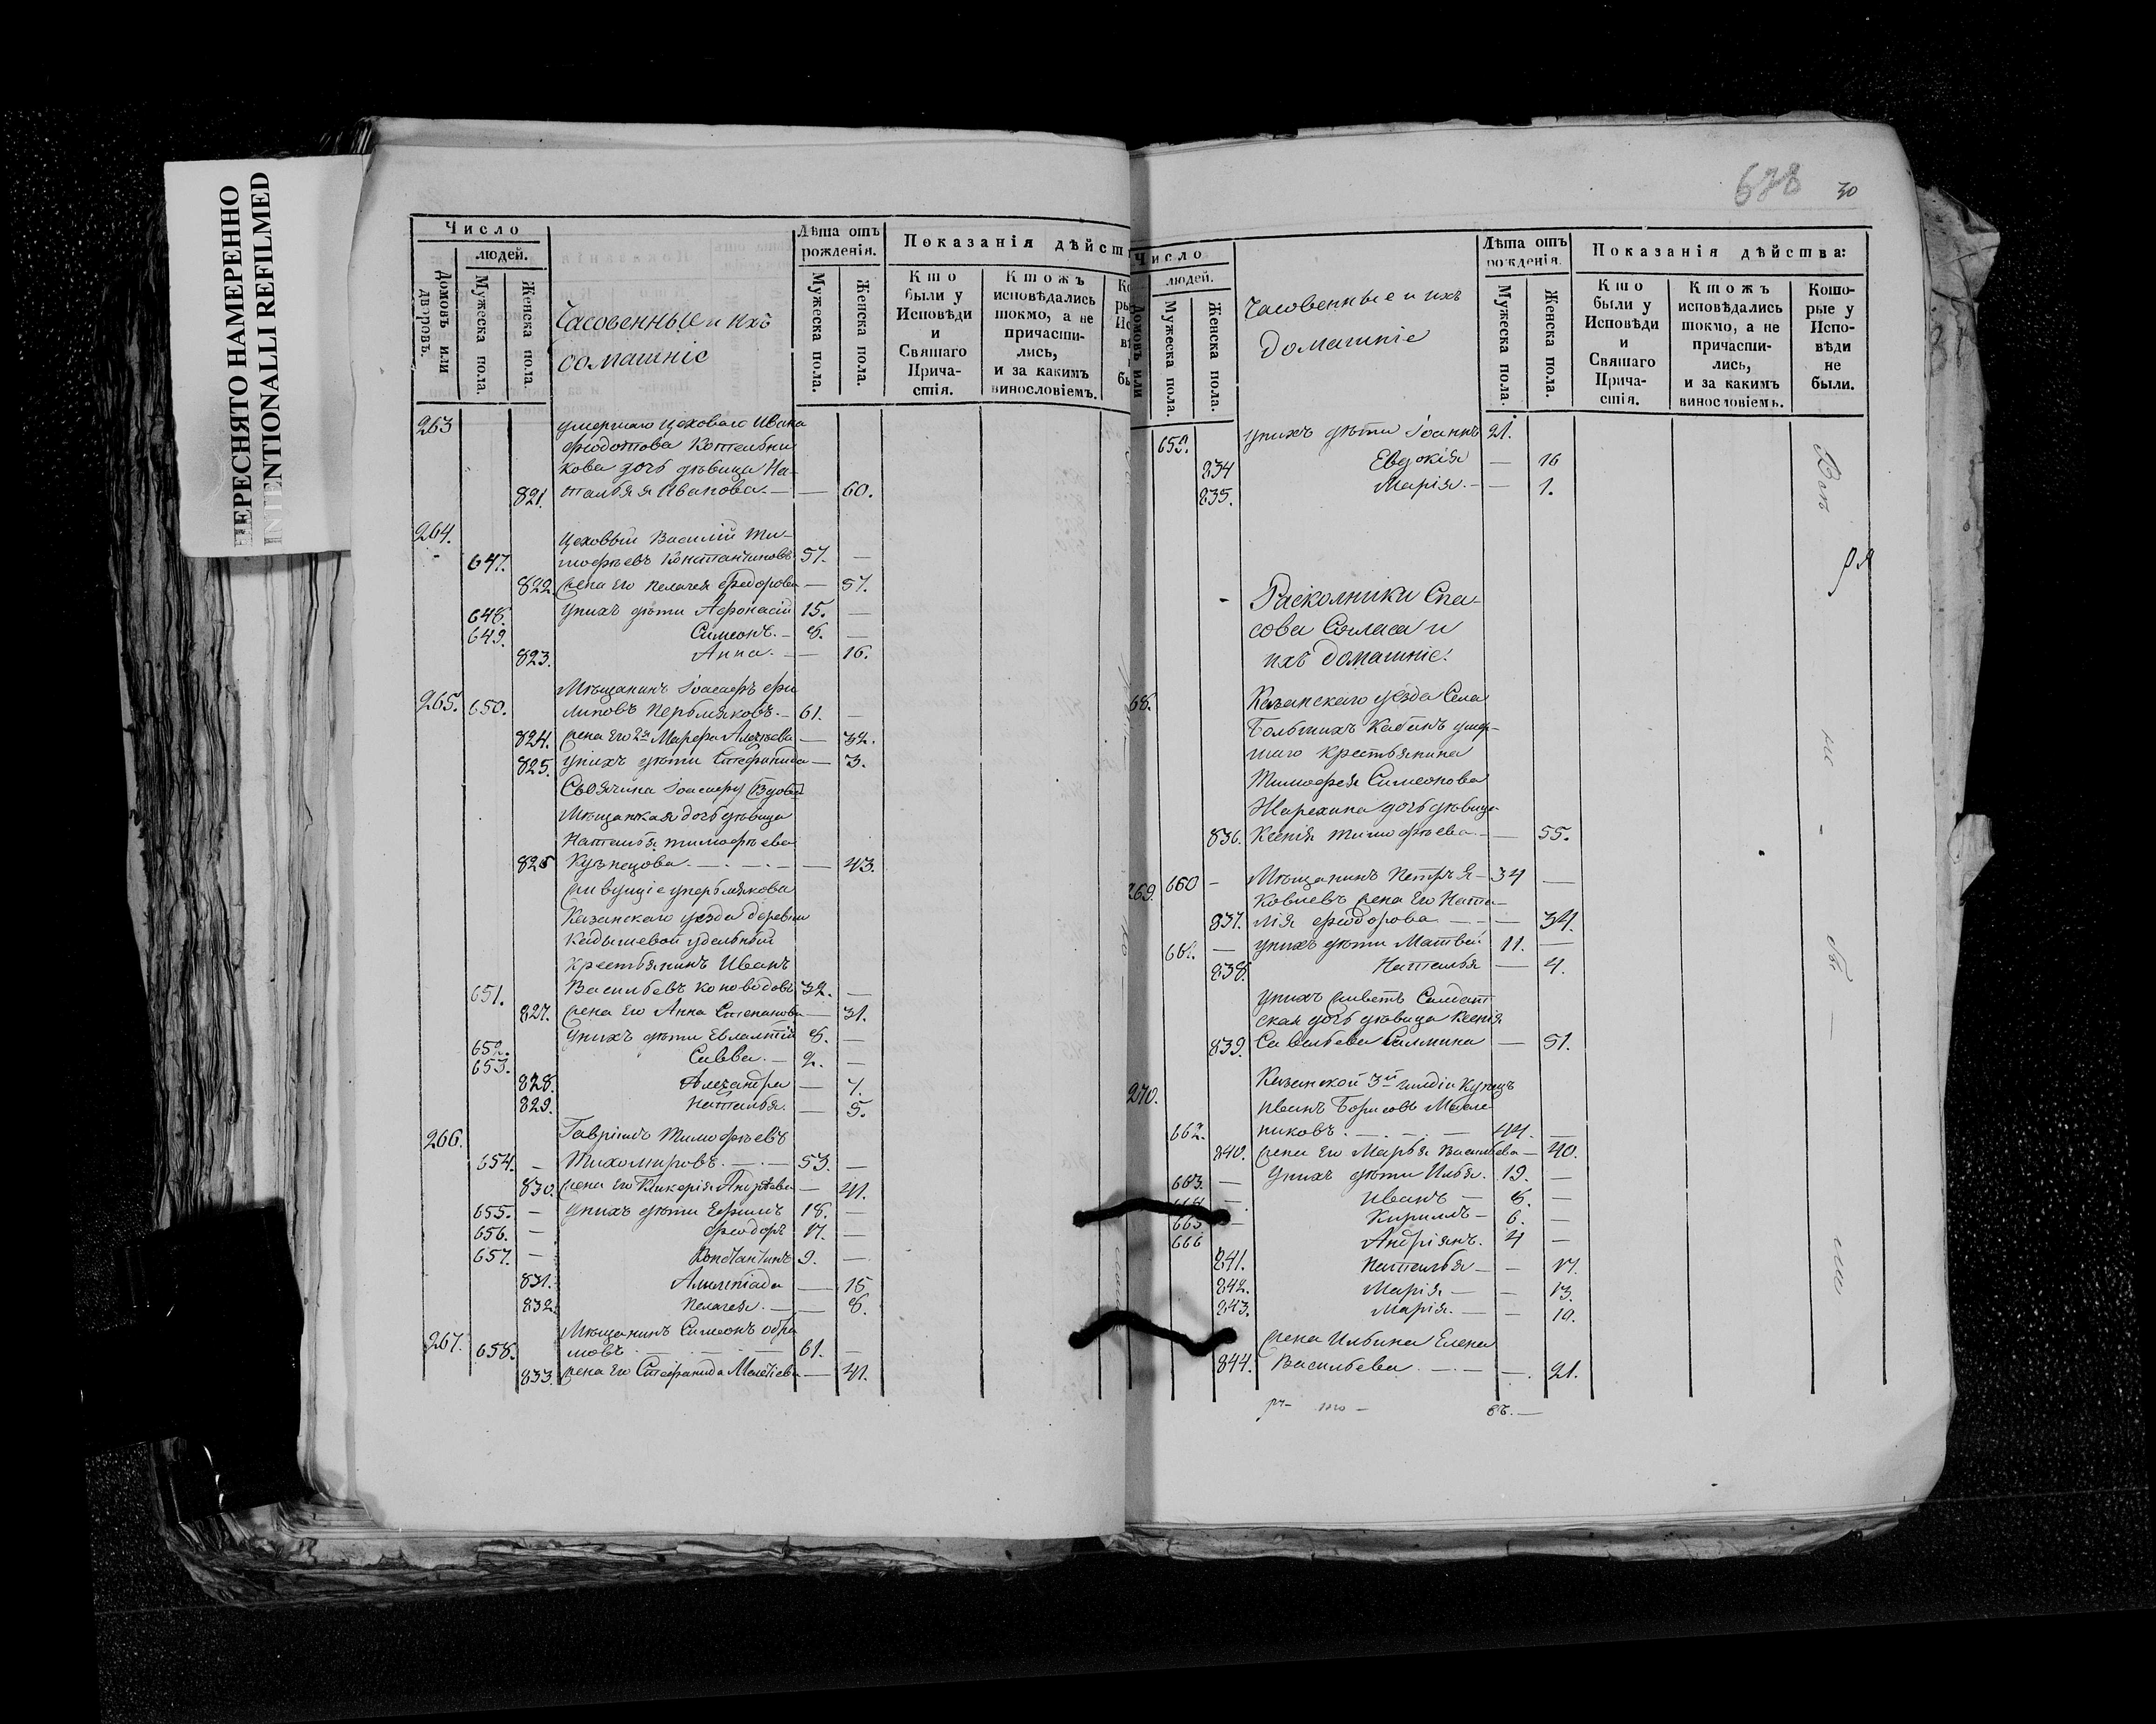 ПЕРЕСНЯТО НАМЕРЕННО
INTENTIONALLI REFILMED
Число
людей.
Домовъ или дворовъ.
Мужеска пола.
Женска пола.
Часовенные и ихъ
домашніе
Лѣта отъ
рожденія.
Мужеска пола.
Женска пола.
Показанія дѣйст
Кто
были у
Исповѣди
и
Святаго
Прича-
стія.
Ктожъ
исповѣдались
токмо, а не
причасти-
лись,
и за какимъ
винословіемъ.
263 умершаго цеховаго Ивана
Фіодотова Котельни
кова дочь дѣвица На-
821. талья Иванова — — 60.
264. Цеховый Василій Ти-
647. мофѣевъ Константиновъ 57. —
822. жена его Пелагея Феодорова — 57.
648. у нихъ дѣти Афонасій 15. —
649. Симеонъ. — 8. —
823. Анна. — — 16.
Мѣщанинъ Іоасафъ Фи
265. 650. липовъ Перьмяковъ. — 61. —
824. жена его 2я Марфа Алексѣева — 32.
825. у нихъ дѣти Стефанида — 3.
Своячина Іоасафу вдова
Мѣщанская дочь дѣвица
Наталья Тимофѣева
826 Кузнецова. — . — . — — 43.
живущіе у Перьмякова
Казанскаго уѣзда деревни
Кадышевой удельный
крестьянинъ Иванъ
651. Васильевъ Коноводовъ 32. —
827. жена его Анна Степанова — 31.
652. у нихъ дѣти Евлампій 8. —
653. Савва. — 2. —
828. Александра — 7.
829. Наталья. — 5.
266. Гавріилъ Тимофѣевъ
654. — Тихомировъ. — . — 53. —
830. жена его Гликерія Андрѣева — 41.
655. — у нихъ дѣти Ефимъ 18. —
656. — Феодоръ 17. —
657. — Константинъ 9. —
831. Алимпіада — 15
832. Пелагея. — — 8.
Мѣщанинъ Симеонъ Абра
267. 658. мовъ — . — . — 61. —
833. жена его Стефанида Мелетіева — 41.
678 30
Число
людей.
Домовъ или
Мужеска пола.
Женска пола.
Часовенные и ихъ
домашніе
Лѣта отъ
рожденія.
Мужеска пола.
Женска пола.
Показанія дѣйства:
Кто
были у
Исповѣди
и
Святаго
Прича-
стія.
Ктожъ
исповѣдались
токмо, а не
причасти-
лись,
и за какимъ
винословіемъ.
Кото-
рые у
Испо-
вѣди
не
были.
659. у нихъ дѣти Іоаннъ 21.
834 Евдокія — 16
835. Марія. — — 1.
Расколники Спа-
сова Согласа и
ихъ домашніе:
68. Казанскаго уѣзда Села
Большихъ Кабанъ умер-
шаго крестьянина
Тимофея Симеонова
Жарехина дочь дѣвица
836. Ксенія Тимофѣева. — — 55.
269. 660 — Мѣщанинъ Петръ Я- 34 —
ковлевъ жена его Ната-
837. лія Феодорова — . — — 34.
661. — у нихъ дѣти Матвей 11. —
838. Наталья — 4.
у нихъ живетъ Солдат
ская дочь дѣвица Ксенія
839. Савельева — 51.
270. Казанской 3й гилдіи купецъ
Иванъ Борисовъ Масле
662. никовъ. — . — . — 44. —
840. жена его Марья Васильева — 40.
663. — у нихъ дѣти Илья. 19. —
664 — Иванъ — 8. —
665 — Кирилъ — 6. —
666 Андріянъ. 4 —
841. Наталья — — 17.
842. Марія — — 13.
843. Марія. — — 10.
жена Ильина Елена
844. Васильева. — . — — . 21.